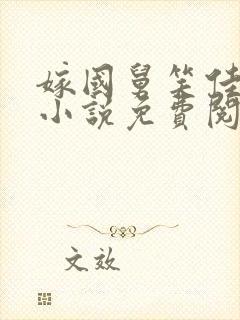 嫁國舅笑佳
小說免費閱
文效